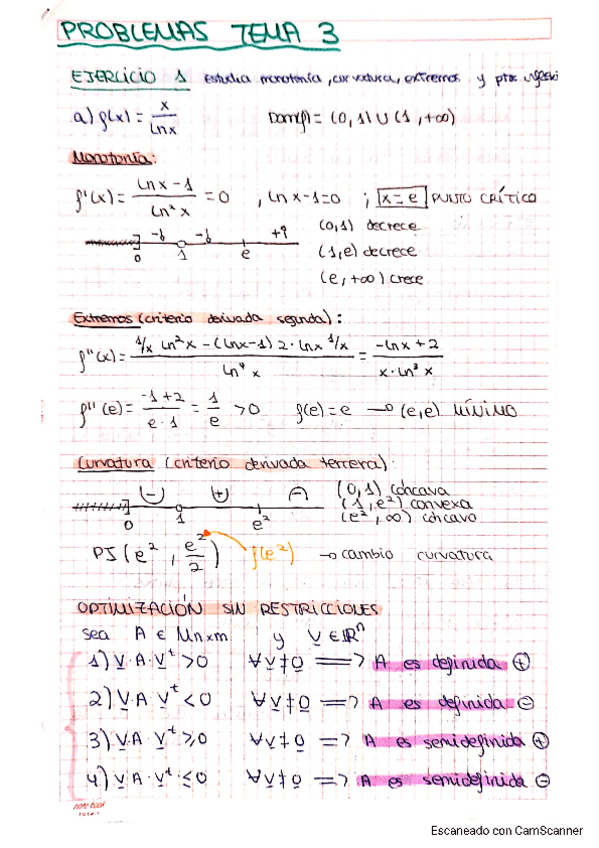 PROBLEMAS TEMA 3
EJERCICIO 1 Estudia monotonía, curvatura, extremos y ptos
a) f(x) = x/lnx Dom(f) = (0,1) ∪ (1,+∞)
Monotonía:
f'(x) = (lnx-1)/(ln² x) = 0 , ln x-1=0 ; x=e PUNTO CRÍTICO
(0,1) decrece
0 1 e
(1,e) decrece
(e,+∞) crece
Extremos (criterio derivada segunda):
f''(x) = (1/x ln²x - (lnx-1) 2·lnx 1/x)/(ln⁴ x) = (-lnx+2)/(x·ln³ x)
f''(e) = (-1+2)/(e·1) = 1/e >0 f(e)=e → (e,e) MÍNIMO
Curvatura (criterio derivada tercera):
(0,1) cóncava
(1,e²) convexa
(e²,∞) cóncavo
0 1 e²
PI(e², e²/2) f(e²) → cambio curvatura
OPTIMIZACIÓN SIN RESTRICCIONES
sea A ∈ Mnxm y V ∈ ℝⁿ
1) V·A·Vᵗ >0 ∀V≠0 => A es definida ⊕
2) V·A·Vᵗ <0 ∀V≠0 => A es definida ⊖
3) V·A·Vᵗ ≥0 ∀V≠0 => A es semidefinida ⊕
4) V·A·Vᵗ ≤0 ∀V≠0 => A es semidefinida ⊖
note book
Escaneado con CamScanner